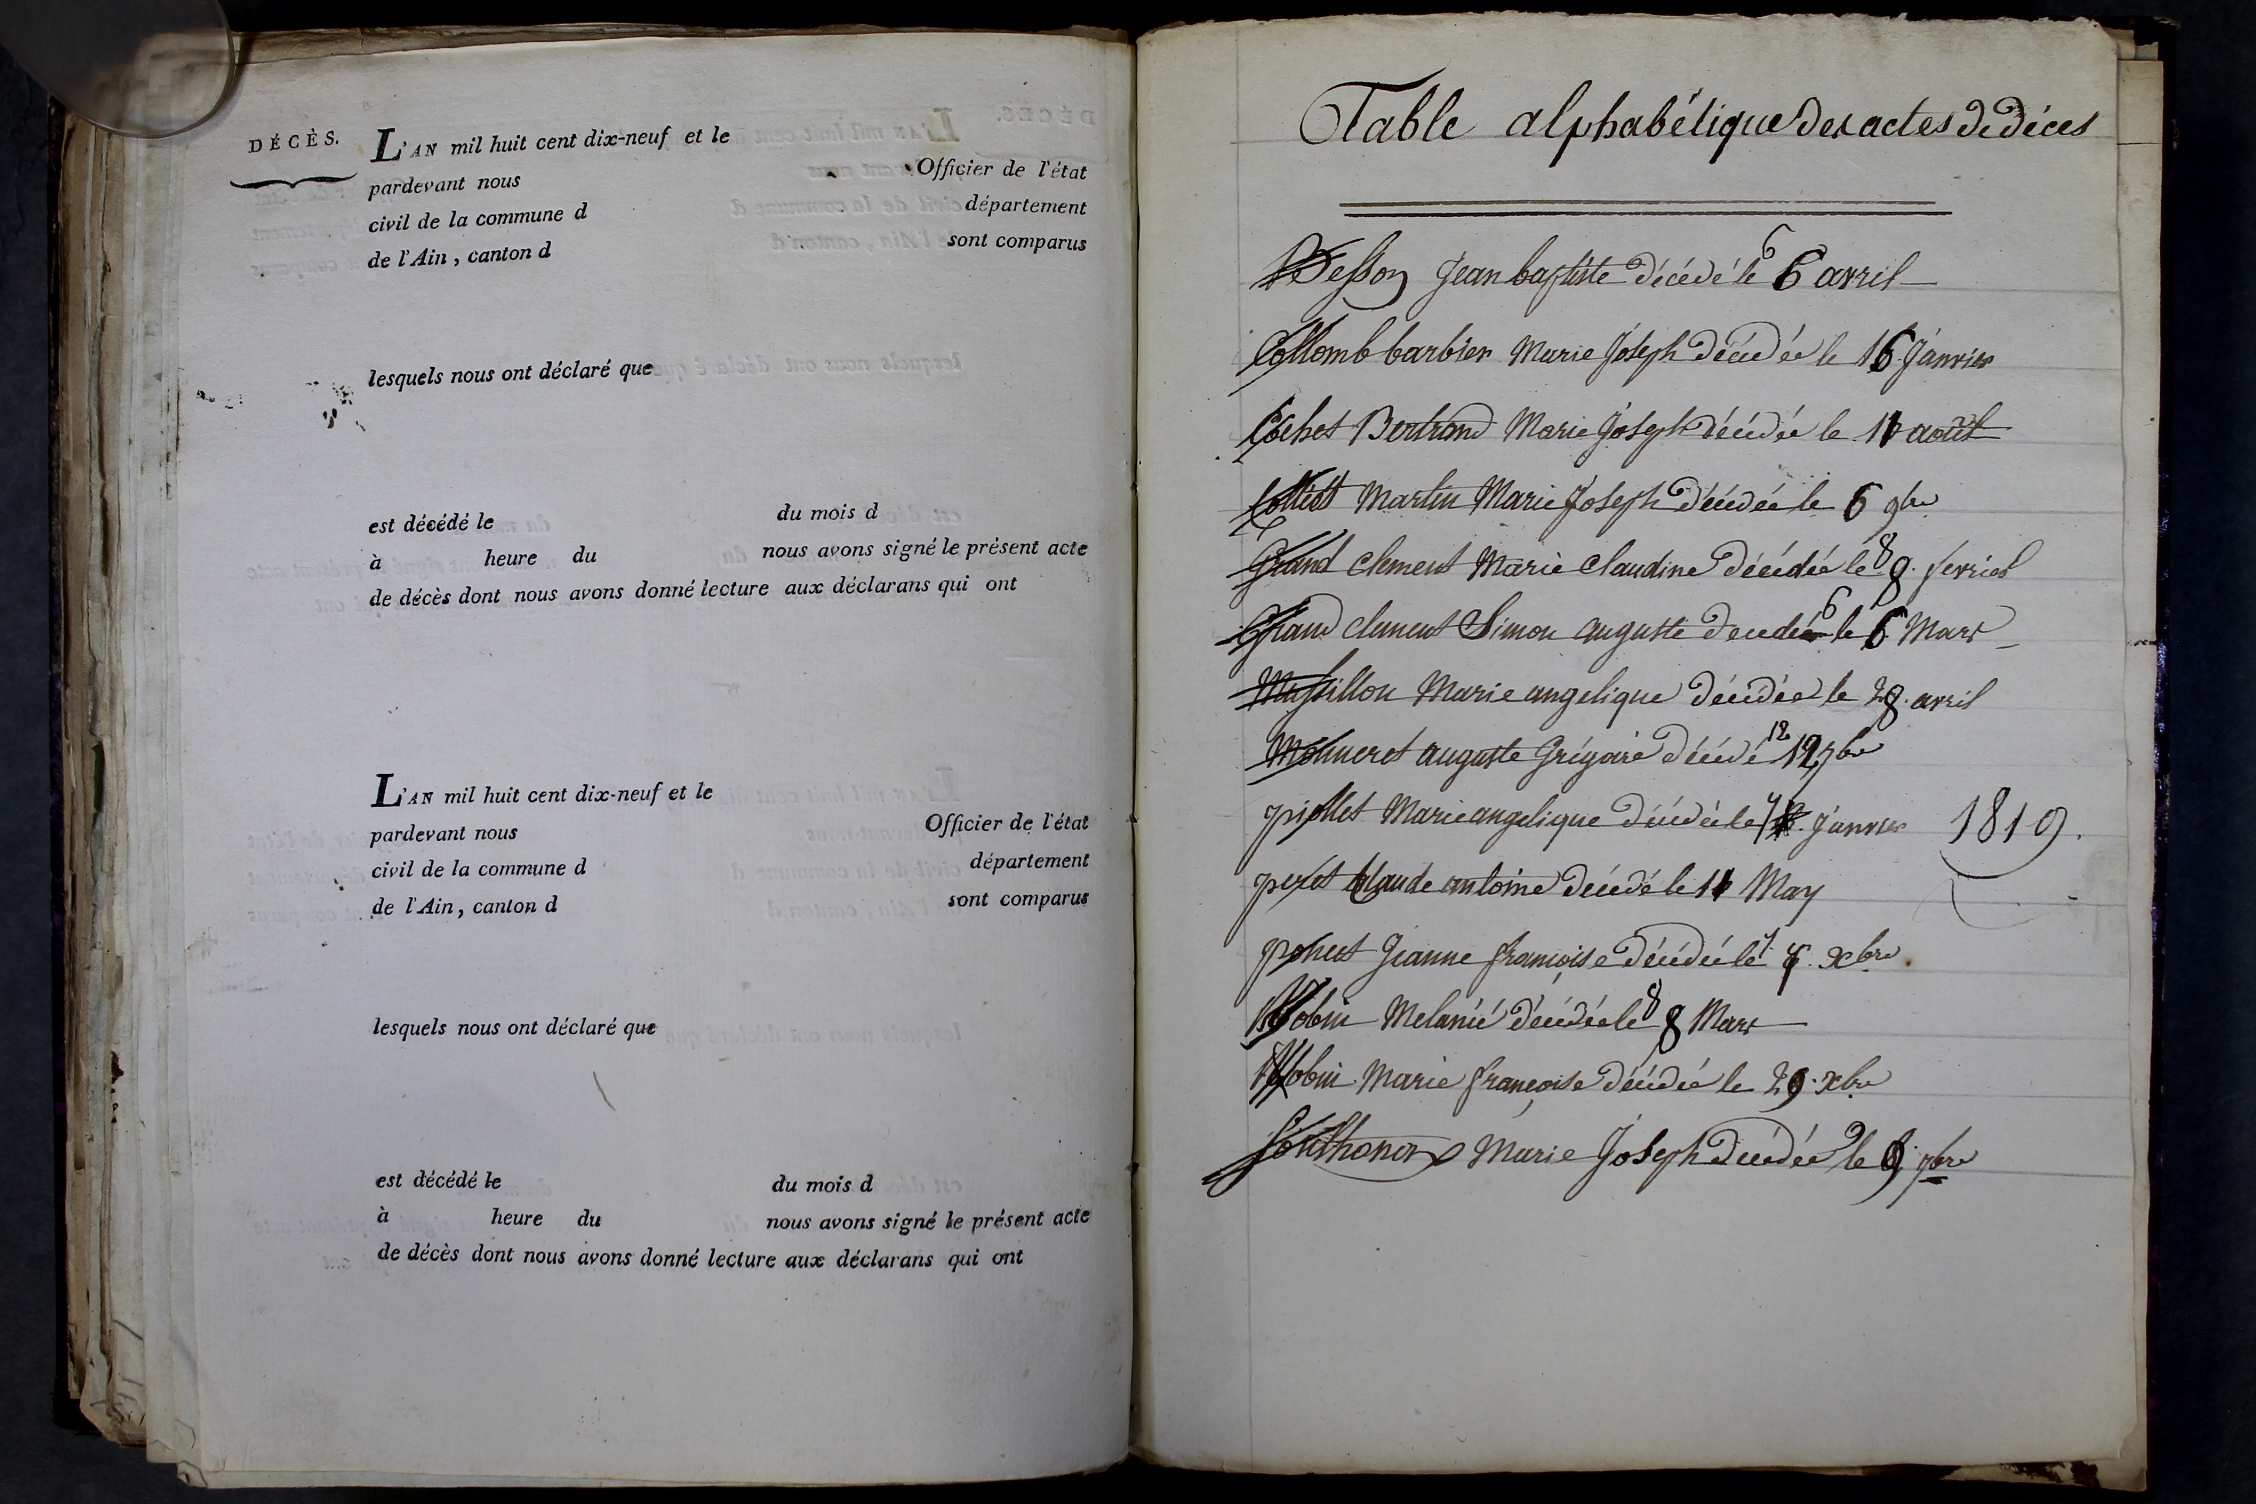 DÉCÈS.
L'AN mil huit cent dix-neuf et le
pardevant nous Officier de l'état
civil de la commune d département
de l'Ain, canton d sont comparus
lesquels nous ont déclaré que
est décédé le du mois d
à heure du nous avons signé le présent acte
de décès dont nous avons donné lecture aux déclarans qui ont
L'AN mil huit cent dix-neuf et le
pardevant nous Officier de l'état
civil de la commune d département
de l'Ain, canton d sont comparus
lesquels nous ont déclaré que
est décédé le du mois d
à heure du nous avons signé le présent acte
de décès dont nous avons donné lecture aux déclarans qui ont
Table alphabétique des actes de déces
Besson Jean baptiste décédé le 6 6 avril
Collomb barbier Marie Joseph décédée le 16 Janvier
Cochet Bertrand Marie Joseph décédée le août
Martin Marie Joseph décédée le 6 9bre
Grand clement Marie Claudine décédée le 8 8. fevrier
Grand clement Simon auguste décédé 6 le 6 Mars
Massillon Marie angelique décédée le 28. avril
Monneret auguste Grégoire décédé 12 12 7bre
piollet Marie angelique décédée le Janvier 1819.
Claude antoine décédé le May
ponest Jeanne françoise décédée le xbre
Robin Melanie décédée le 8 8 Mars
Robin Marie françoise décédée le 29. xbre
Southonax Marie Joseph décédée le 9 9bre